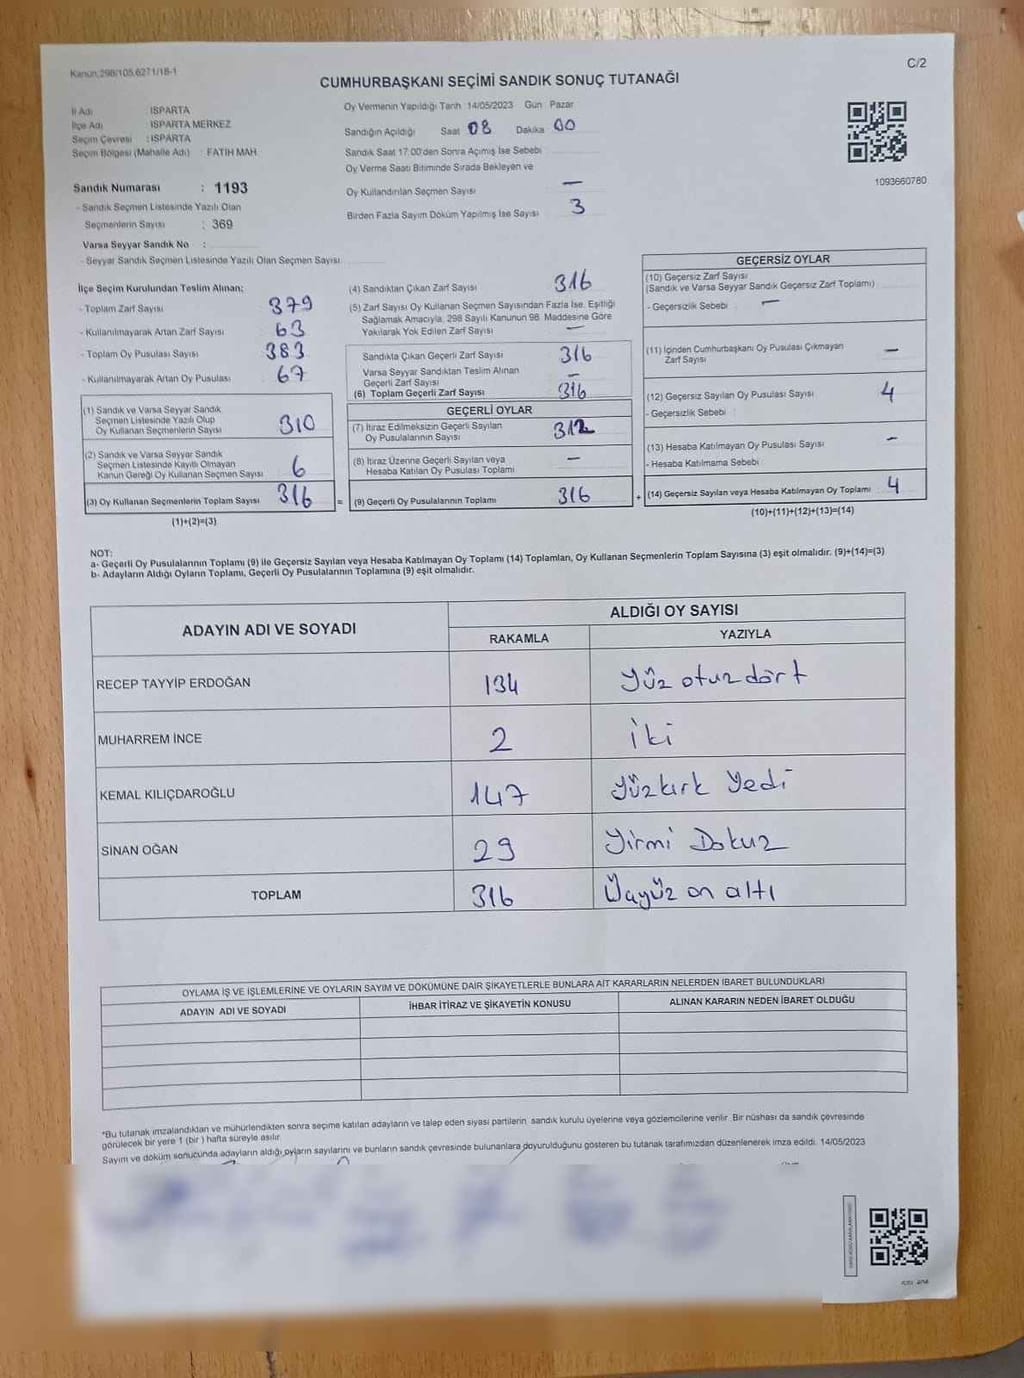 Kanun:298/105,6271/18-1
C/2
CUMHURBAŞKANI SEÇİMİ SANDIK SONUÇ TUTANAĞI
İl Adı : ISPARTA
İlçe Adı : ISPARTA MERKEZ
Seçim Çevresi : ISPARTA
Seçim Bölgesi (Mahalle Adı) : FATİH MAH.
Sandık Numarası : 1193
- Sandık Seçmen Listesinde Yazılı Olan
Seçmenlerin Sayısı : 369
Varsa Seyyar Sandık No :
- Seyyar Sandık Seçmen Listesinde Yazılı Olan Seçmen Sayısı
Oy Vermenin Yapıldığı Tarih 14/05/2023 Gün : Pazar
Sandığın Açıldığı Saat 08 Dakika 00
Sandık Saat 17:00'den Sonra Açılmış İse Sebebi
Oy Verme Saati Bitiminde Sırada Bekleyen ve
Oy Kullandırılan Seçmen Sayısı —
Birden Fazla Sayım Döküm Yapılmış İse Sayısı 3
1093660780
İlçe Seçim Kurulundan Teslim Alınan:
- Toplam Zarf Sayısı 379
- Kullanılmayarak Artan Zarf Sayısı 63
- Toplam Oy Pusulası Sayısı 383
- Kullanılmayarak Artan Oy Pusulası 67
(1) Sandık ve Varsa Seyyar Sandık
Seçmen Listesinde Yazılı Olup
Oy Kullanan Seçmenlerin Sayısı 310
(2) Sandık ve Varsa Seyyar Sandık
Seçmen Listesinde Kayıtlı Olmayan
Kanun Gereği Oy Kullanan Seçmen Sayısı 6
(3) Oy Kullanan Seçmenlerin Toplam Sayısı 316 =
(1)+(2)=(3)
(4) Sandıktan Çıkan Zarf Sayısı 316
(5) Zarf Sayısı Oy Kullanan Seçmen Sayısından Fazla İse, Eşitliği
Sağlamak Amacıyla, 298 Sayılı Kanunun 98. Maddesine Göre
Yakılarak Yok Edilen Zarf Sayısı —
Sandıkta Çıkan Geçerli Zarf Sayısı 316
Varsa Seyyar Sandıktan Teslim Alınan
Geçerli Zarf Sayısı —
(6) Toplam Geçerli Zarf Sayısı 316
GEÇERLİ OYLAR
(7) İtiraz Edilmeksizin Geçerli Sayılan
Oy Pusulalarının Sayısı 312
(8) İtiraz Üzerine Geçerli Sayılan veya
Hesaba Katılan Oy Pusulası Toplamı —
(9) Geçerli Oy Pusulalarının Toplamı 316 +
GEÇERSİZ OYLAR
(10) Geçersiz Zarf Sayısı
(Sandık ve Varsa Seyyar Sandık Geçersiz Zarf Toplamı)
- Geçersizlik Sebebi : —
(11) İçinden Cumhurbaşkanı Oy Pusulası Çıkmayan
Zarf Sayısı —
(12) Geçersiz Sayılan Oy Pusulası Sayısı 4
- Geçersizlik Sebebi :
(13) Hesaba Katılmayan Oy Pusulası Sayısı —
- Hesaba Katılmama Sebebi
(14) Geçersiz Sayılan veya Hesaba Katılmayan Oy Toplamı 4
(10)+(11)+(12)+(13)=(14)
NOT:
a- Geçerli Oy Pusulalarının Toplamı (9) ile Geçersiz Sayılan veya Hesaba Katılmayan Oy Toplamı (14) Toplamları, Oy Kullanan Seçmenlerin Toplam Sayısına (3) eşit olmalıdır. (9)+(14)=(3)
b- Adayların Aldığı Oyların Toplamı, Geçerli Oy Pusulalarının Toplamına (9) eşit olmalıdır.
ADAYIN ADI VE SOYADI
ALDIĞI OY SAYISI
RAKAMLA YAZIYLA
RECEP TAYYİP ERDOĞAN 134 Yüz otuz dört
MUHARREM İNCE 2 İki
KEMAL KILIÇDAROĞLU 147 Yüzkırk Yedi
SİNAN OĞAN 29 Yirmi Dokuz
TOPLAM 316 Üçyüz on altı
OYLAMA İŞ VE İŞLEMLERİNE VE OYLARIN SAYIM VE DÖKÜMÜNE DAİR ŞİKAYETLERLE BUNLARA AİT KARARLARIN NELERDEN İBARET BULUNDUKLARI
ADAYIN ADI VE SOYADI İHBAR İTİRAZ VE ŞİKAYETİN KONUSU ALINAN KARARIN NEDEN İBARET OLDUĞU
*Bu tutanak imzalandıktan ve mühürlendikten sonra seçime katılan adayların ve talep eden siyasi partilerin, sandık kurulu üyelerine veya gözlemcilerine verilir. Bir nüshası da sandık çevresinde
görülecek bir yere 1 (bir) hafta süreyle asılır.
Sayım ve döküm sonucunda adayların aldığı oyların sayılarını ve bunların sandık çevresinde bulunanlara duyurulduğunu gösteren bu tutanak tarafımızdan düzenlenerek imza edildi. 14/05/2023